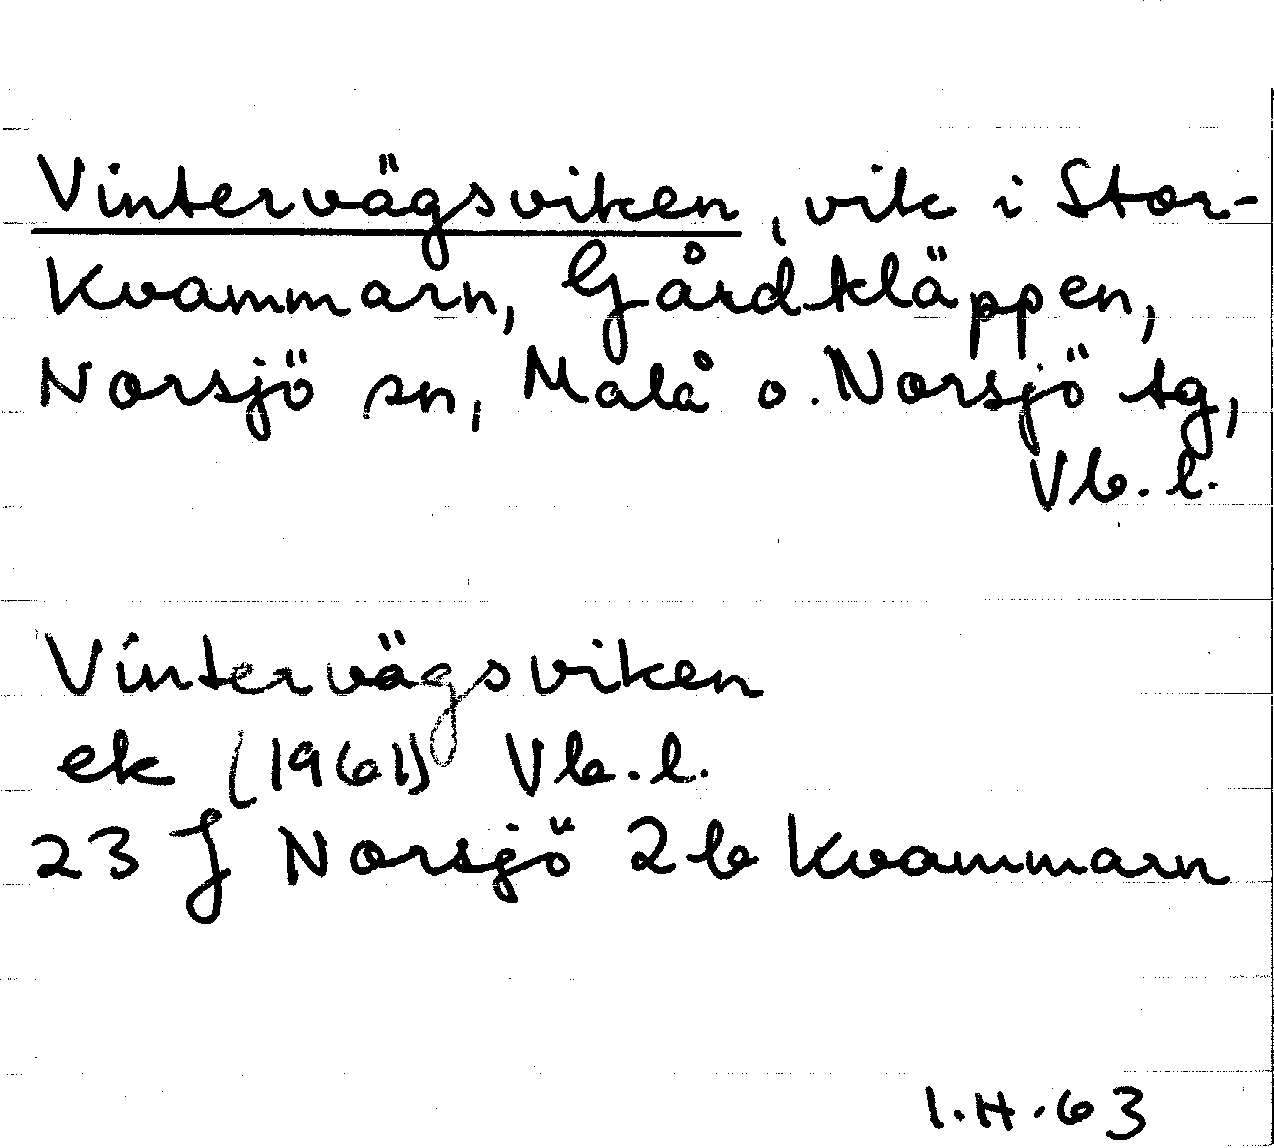 Vintervägsviken, vik i Stor-
Kvammarn, Gårdkläppen,
Norsjö sn, Malå o. Norsjö tg,
Vb. l.
Vintervägsviken
ek (1961) Vb. l.
23 J Norsjö 2b Kvammarn
I.H.63